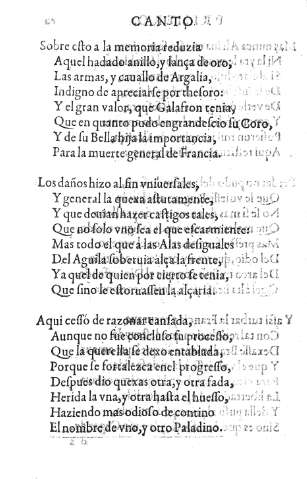 CANTO
Sobre esto a la memoria reduzia
Aquel hadado anillo, y lança de oro;
Las armas, y cauallo de Argalia,
Indigno de apreciarse por thesoro:
Y el gran valor, que Galafron tenia,
Que en quanto pudo engrandescio su Coro,
Y de su Bella hija la importancia,
Para la muerte general de Francia.
Los daños hizo al fin vniuersales,
Y general la quexa astutamente,
Y que deuian hazer castigos tales,
Que no solo vno sea el que escarmiente:
Mas todo el que à las Alas desiguales
Del Aguila soberuia alça la frente,
Ya que de quien por cierto se tenia,
Que sino le estoruassen la alçaria.
Aqui cessò de razonar cansada,
Aunque no fue concluso su processo,
Que la querella se dexo entablada,
Porque se fortalezca en el progresso,
Despues dio quexas otra, y otra fada,
Herida la vna, y otra hasta el huesso,
Haziendo mas odioso de contino
El nombre de vno, y otro Paladino.